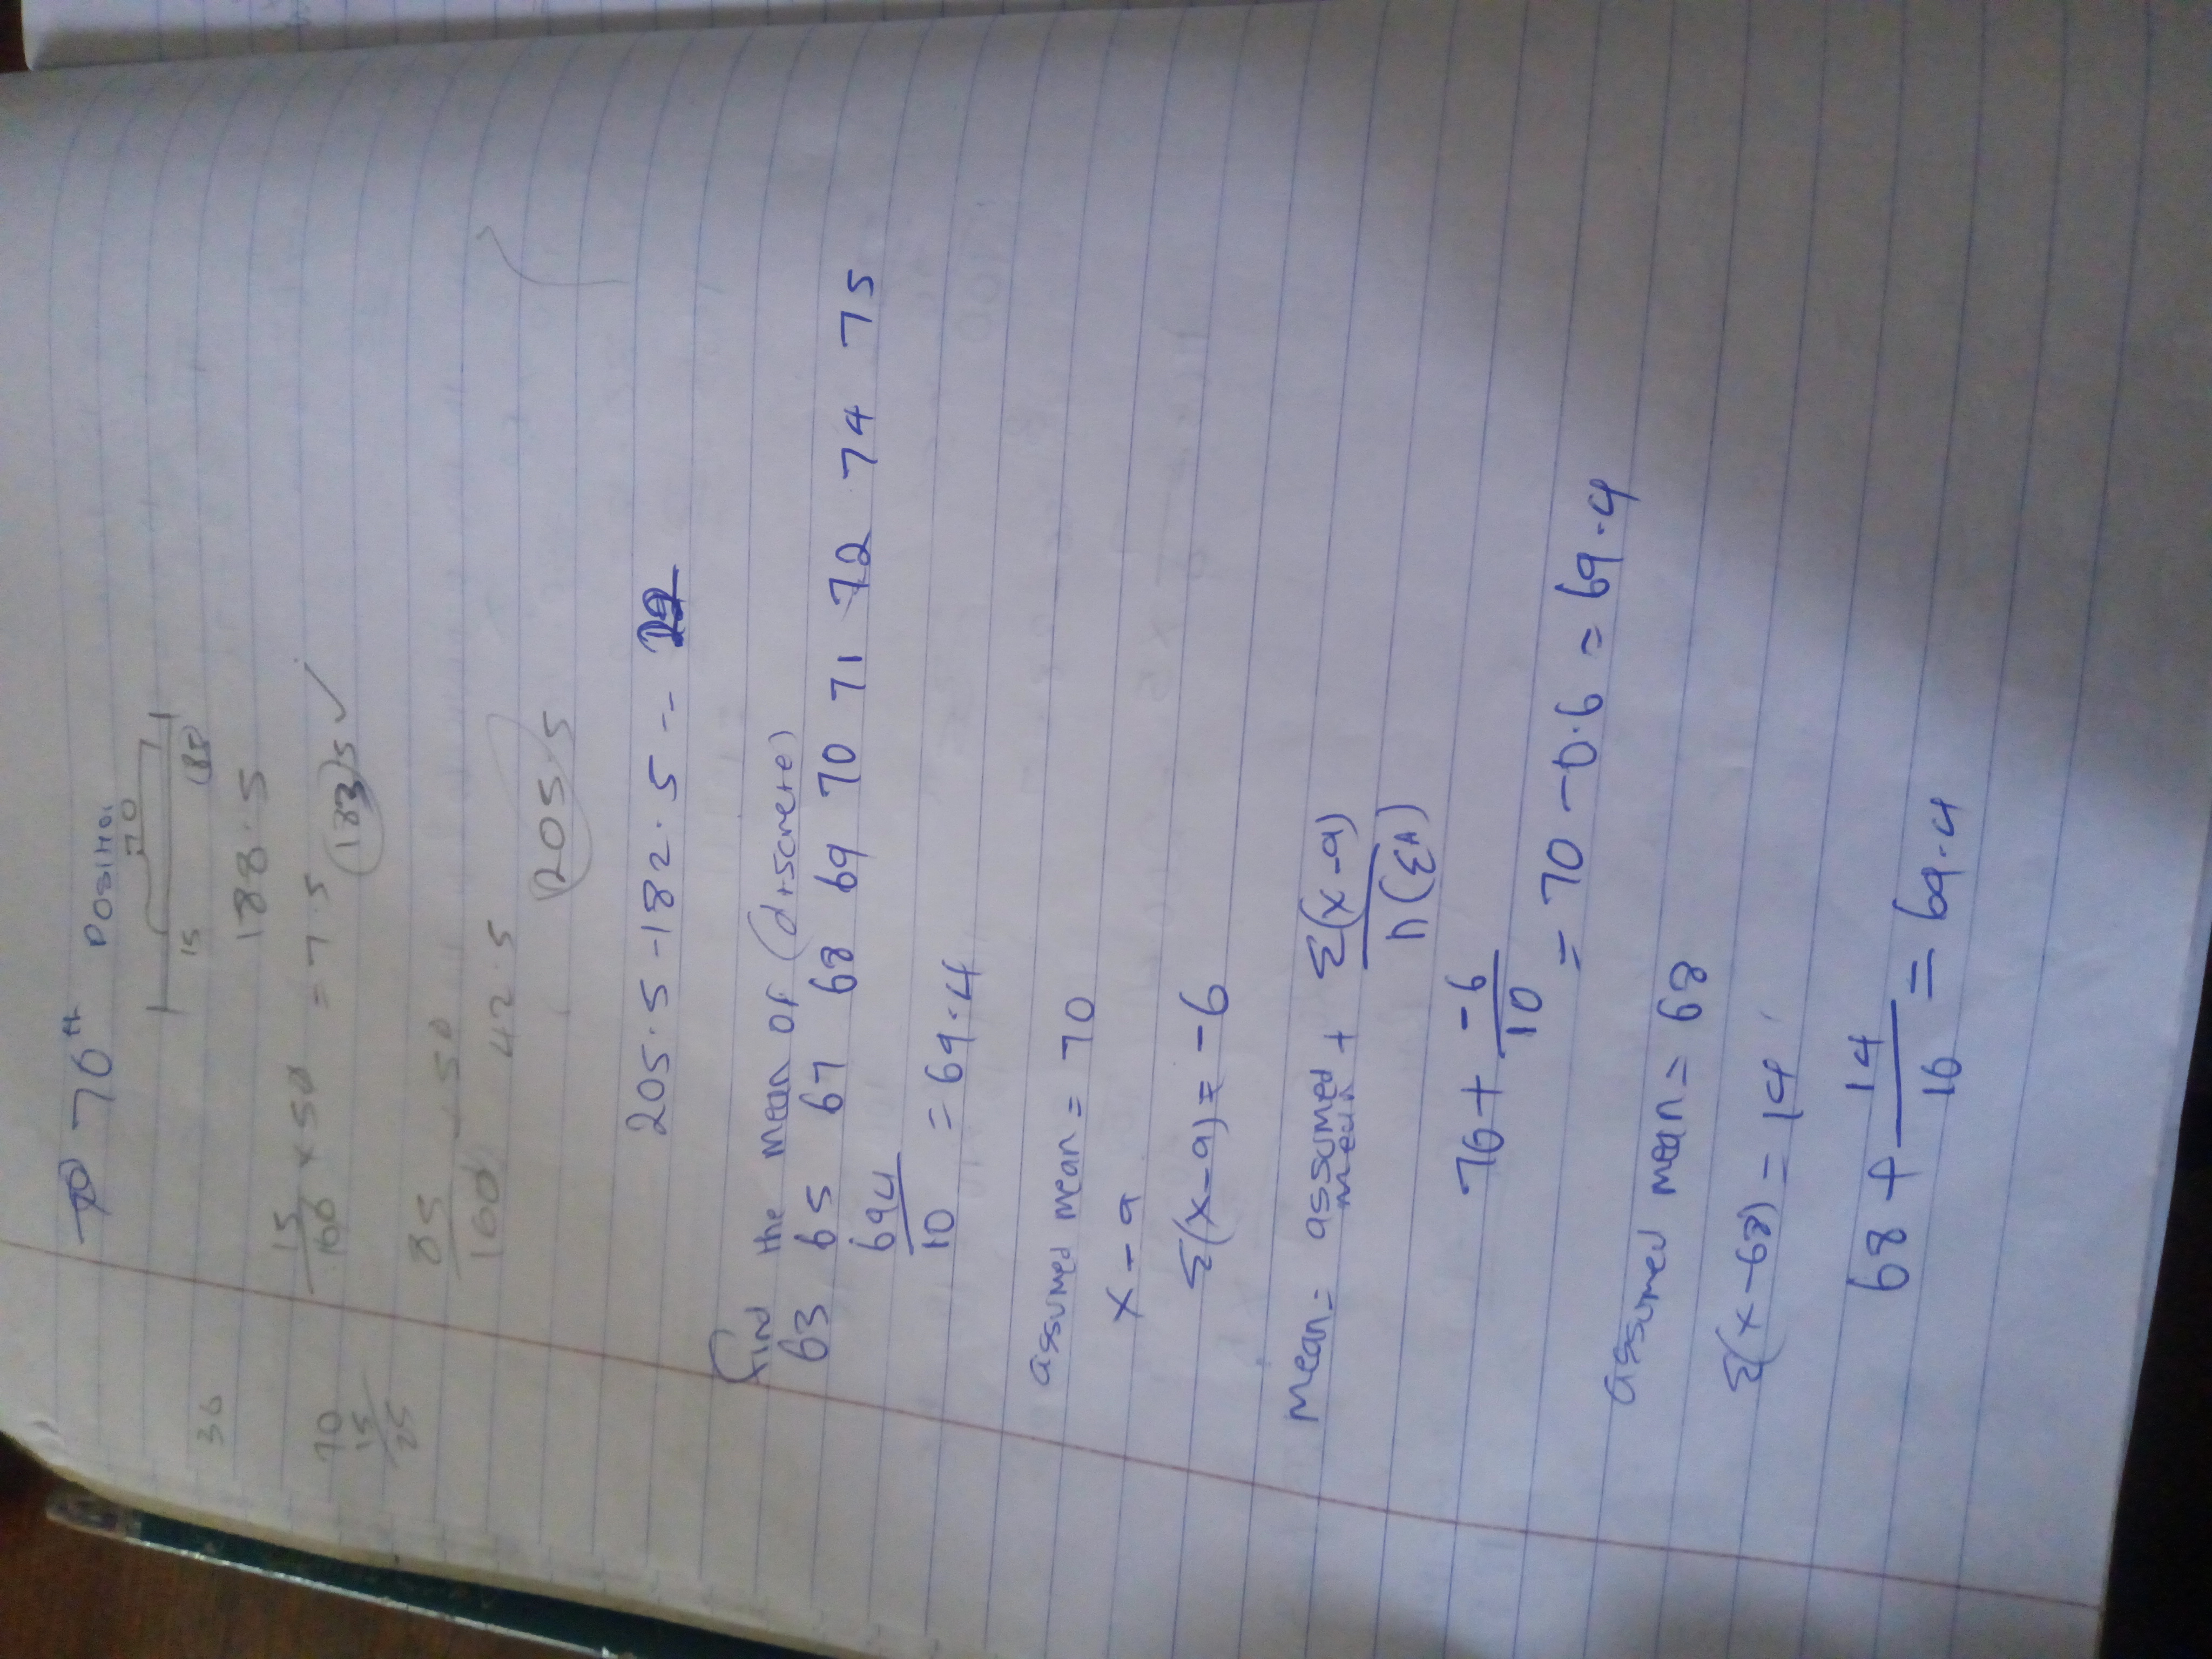 70th Position
70
15 (85)
36
188.5
15/100 × 50 = 7.5
183.5 ✓
70
15
25
85/100 × 50
42.5
205.5
205.5 - 182.5 = 22
Find the mean of (discrete)
63 65 67 68 69 70 71 72 74 75
694/10 = 69.4
assumed mean = 70
x - a
Σ(x-a) = -6
Mean = assumed mean + Σ(x-a)/n(Σf)
70 + -6/10
= 70 - 0.6 = 69.4
assumed mean = 68
Σ(x-68) = 14
68 + 14/10 = 69.4